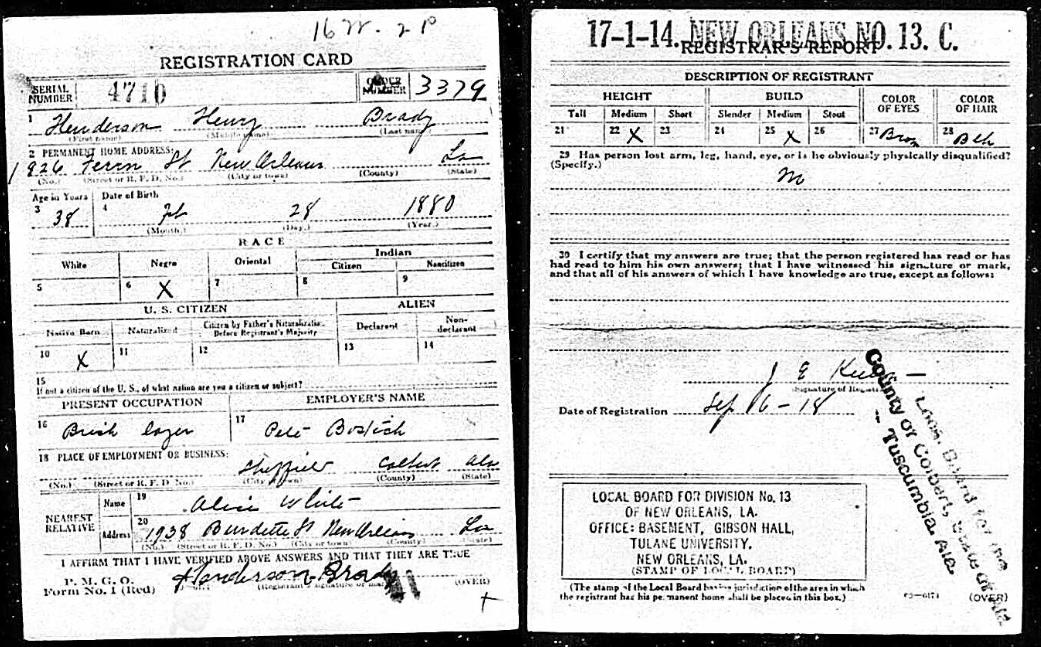 16 W. 2P
REGISTRATION CARD
SERIAL NUMBER 4710 ORDER NUMBER 3379
1 Henderson Henry Brady
(First name) (Middle name) (Last name)
2 PERMANENT HOME ADDRESS:
1826 St New Orleans La
(No.) (Street or R. F. D. No.) (City or town) (County) (State)
Age in Years Date of Birth
3 38 4 Feb 28 1880
(Month.) (Day.) (Year.)
RACE
White Negro Oriental Indian
Citizen Noncitizen
5 6 X 7 8 9
U. S. CITIZEN ALIEN
Native Born Naturalized Citizen by Father's Naturalization Before Registrant's Majority Declarant Non-declarant
10 X 11 12 13 14
15
If not a citizen of the U. S., of what nation are you a citizen or subject?
PRESENT OCCUPATION EMPLOYER'S NAME
16 Brick layer 17 Pete
18 PLACE OF EMPLOYMENT OR BUSINESS:
Sheffield Colbert Ala
(No.) (Street or R. F. D. No.) (City or town) (County) (State)
NEAREST RELATIVE
Name 19 Alice White
Address 20 1938 Burdette St New Orleans La
(No.) (Street or R. F. D. No.) (City or town) (County) (State)
I AFFIRM THAT I HAVE VERIFIED ABOVE ANSWERS AND THAT THEY ARE TRUE
P. M. G. O.
Form No. 1 (Red) Handerson Brady
(Registrant's signature or mark) (OVER)
17-1-14. NEW ORLEANS NO. 13. C.
REGISTRAR'S REPORT
DESCRIPTION OF REGISTRANT
HEIGHT BUILD COLOR OF EYES COLOR OF HAIR
Tall Medium Short Slender Medium Stout
21 22 X 23 24 25 X 26 27 Bro 28 Blk
29 Has person lost arm, leg, hand, eye, or is he obviously physically disqualified?
(Specify.)
no
30 I certify that my answers are true; that the person registered has read or has
had read to him his own answers; that I have witnessed his signature or mark,
and that all of his answers of which I have knowledge are true, except as follows:
J E
(Signature of Registrar)
Date of Registration Sep 16-18
Local Board for the
County of Colbert, State of Ala
Tuscumbia, Ala.
LOCAL BOARD FOR DIVISION No. 13
OF NEW ORLEANS, LA.
OFFICE: BASEMENT, GIBSON HALL,
TULANE UNIVERSITY,
NEW ORLEANS, LA.
(STAMP OF LOCAL BOARD)
(The stamp of the Local Board having jurisdiction of the area in which
the registrant has his permanent home shall be placed in this box.)
03-6171 (OVER)